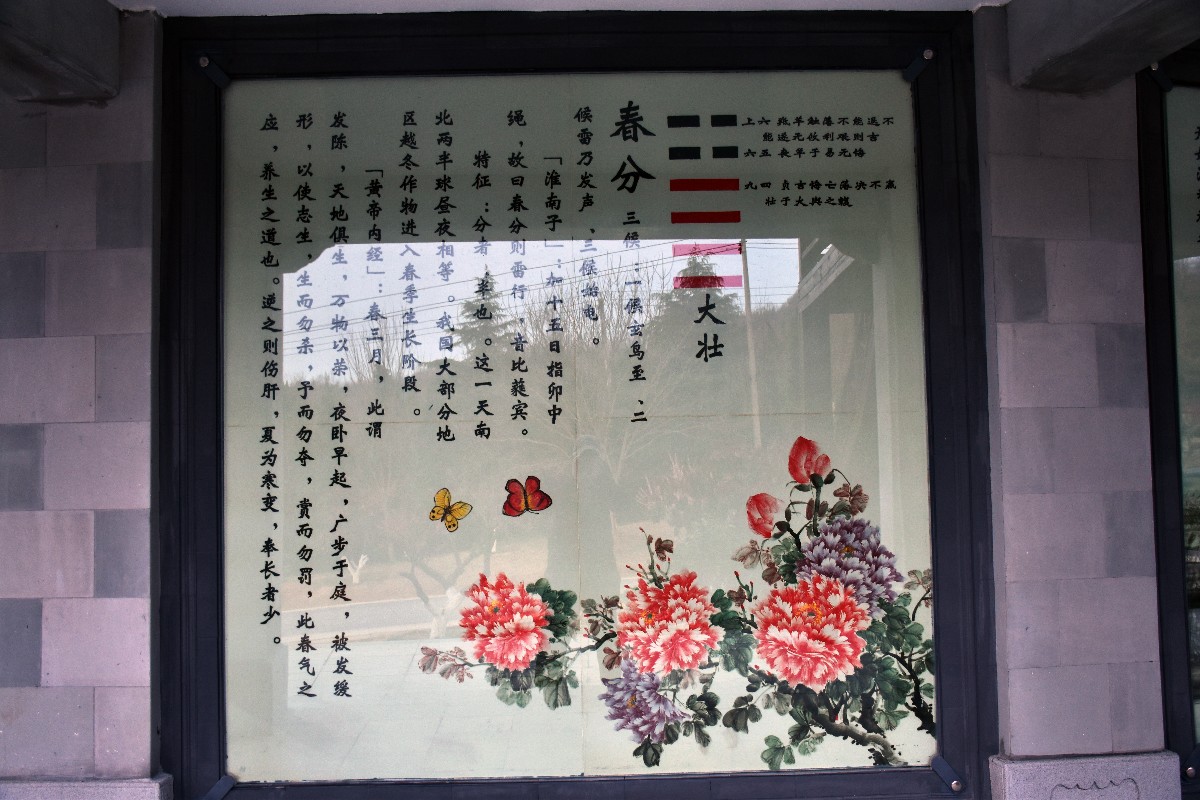 上六 羝羊触落不能退不
能遂无攸利艰则吉
六五 丧羊于易无悔
九四 贞吉悔亡落决不羸
壮于大舆之輹
大壮
春分 三候：一候玄鸟至、二
候雷乃发声、三候始电。
「淮南子」：加十五日指卯中
绳，故曰春分则雷行，音比蕤宾。
特征：分者，半也。这一天南
北两半球昼夜相等。我国大部分地
区越冬作物进入春季生长阶段。
「黄帝内经」：春三月，此谓
发陈，天地俱生，万物以荣，夜卧早起，广步于庭，被发缓
形，以使志生，生而勿杀，予而勿夺，赏而勿罚，此春气之
应，养生之道也。逆之则伤肝，夏为寒变，奉长者少。